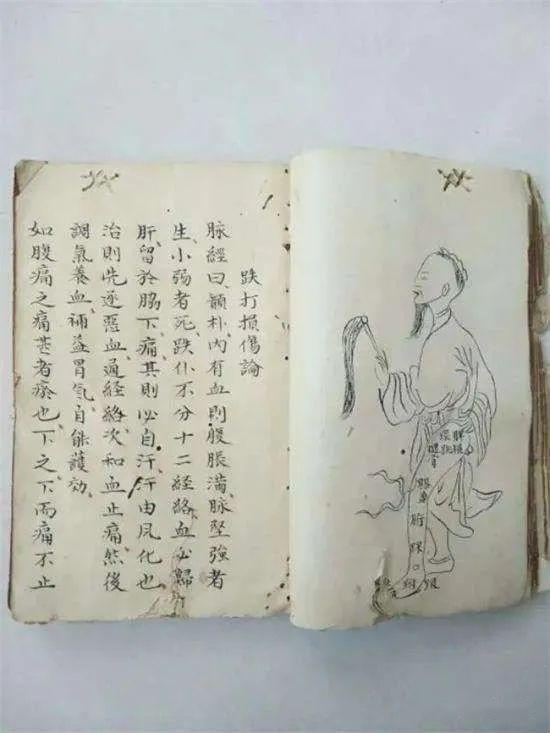 跌打损傷論
脉經曰、顖朴內有血則腹脹滿、脉堅強者
生小弱者死、跌仆不分十二経絡血必歸
肝、留於脇下、痛甚則必自汗、汗由風化也
治則先逐惡血通経絡次和血止痛然後
調氣養血、補益胃氣、自能護効、
如腹痛之痛甚者瘀也、下之、下而痛不止
環跳